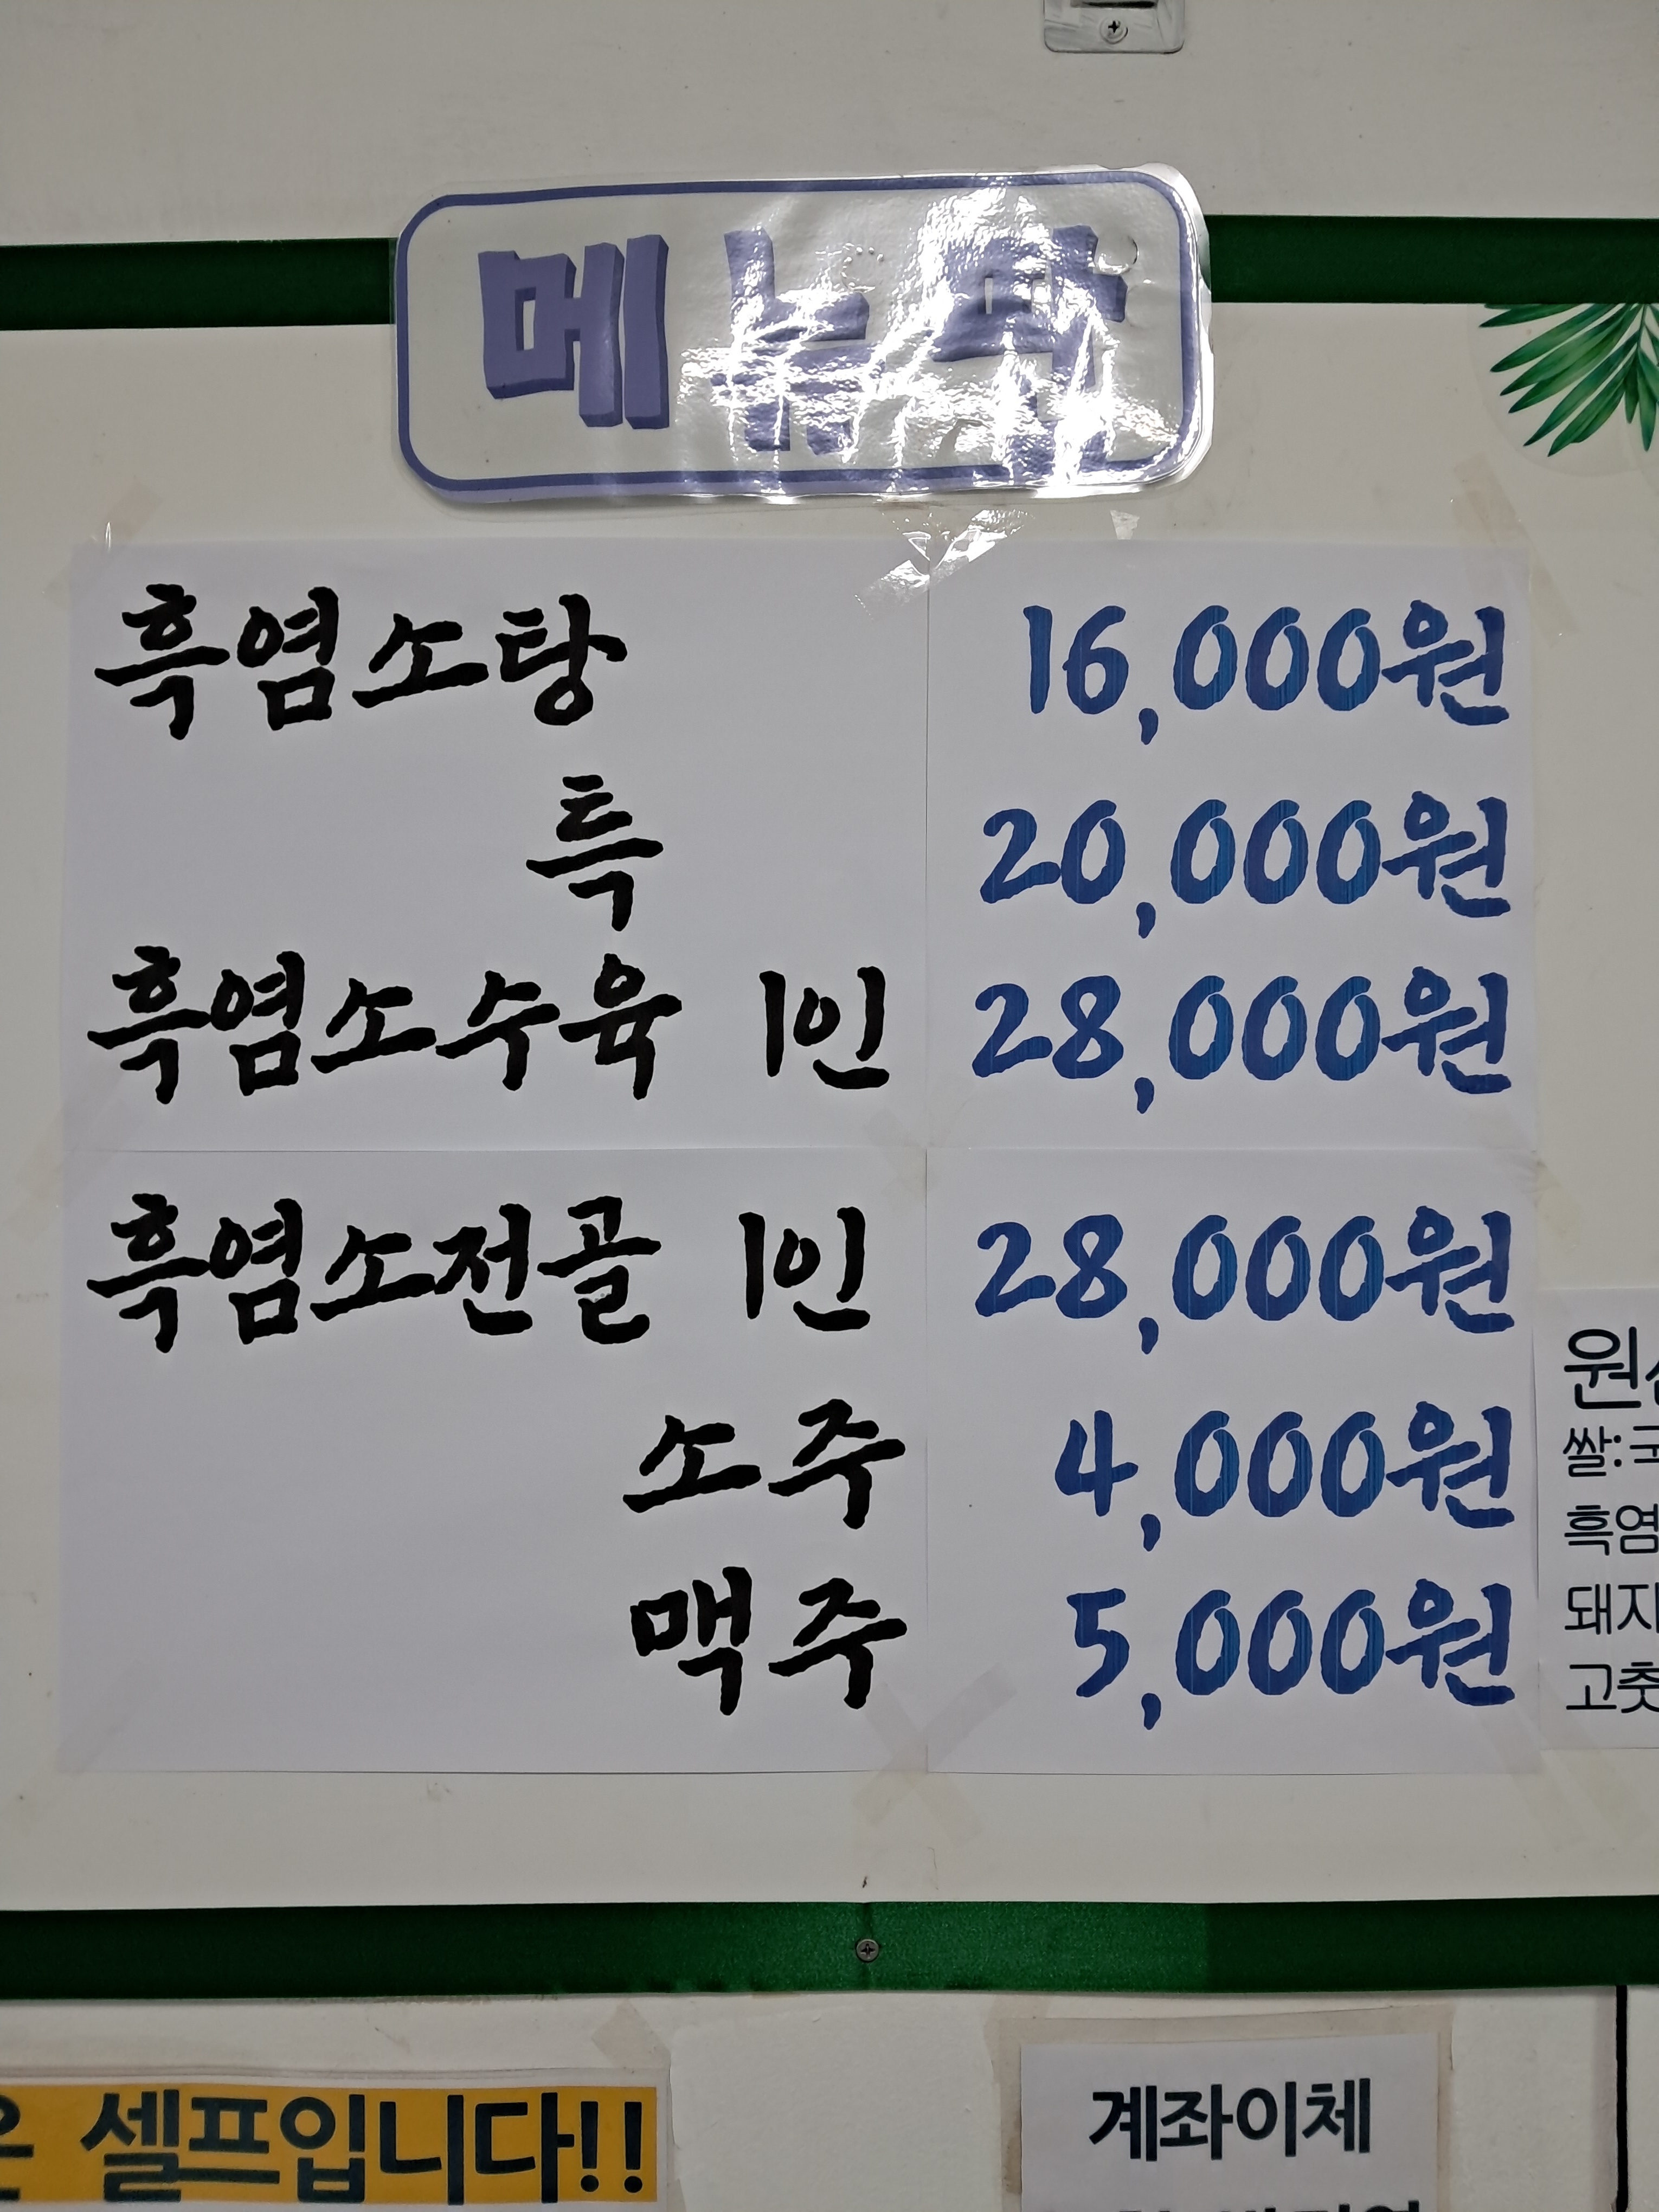 메뉴판
흑염소탕 16,000원
특 20,000원
흑염소수육 1인 28,000원
흑염소전골 1인 28,000원
소주 4,000원
맥주 5,000원
쌀:
흑염
돼지
고춧
셀프입니다!!
계좌이체